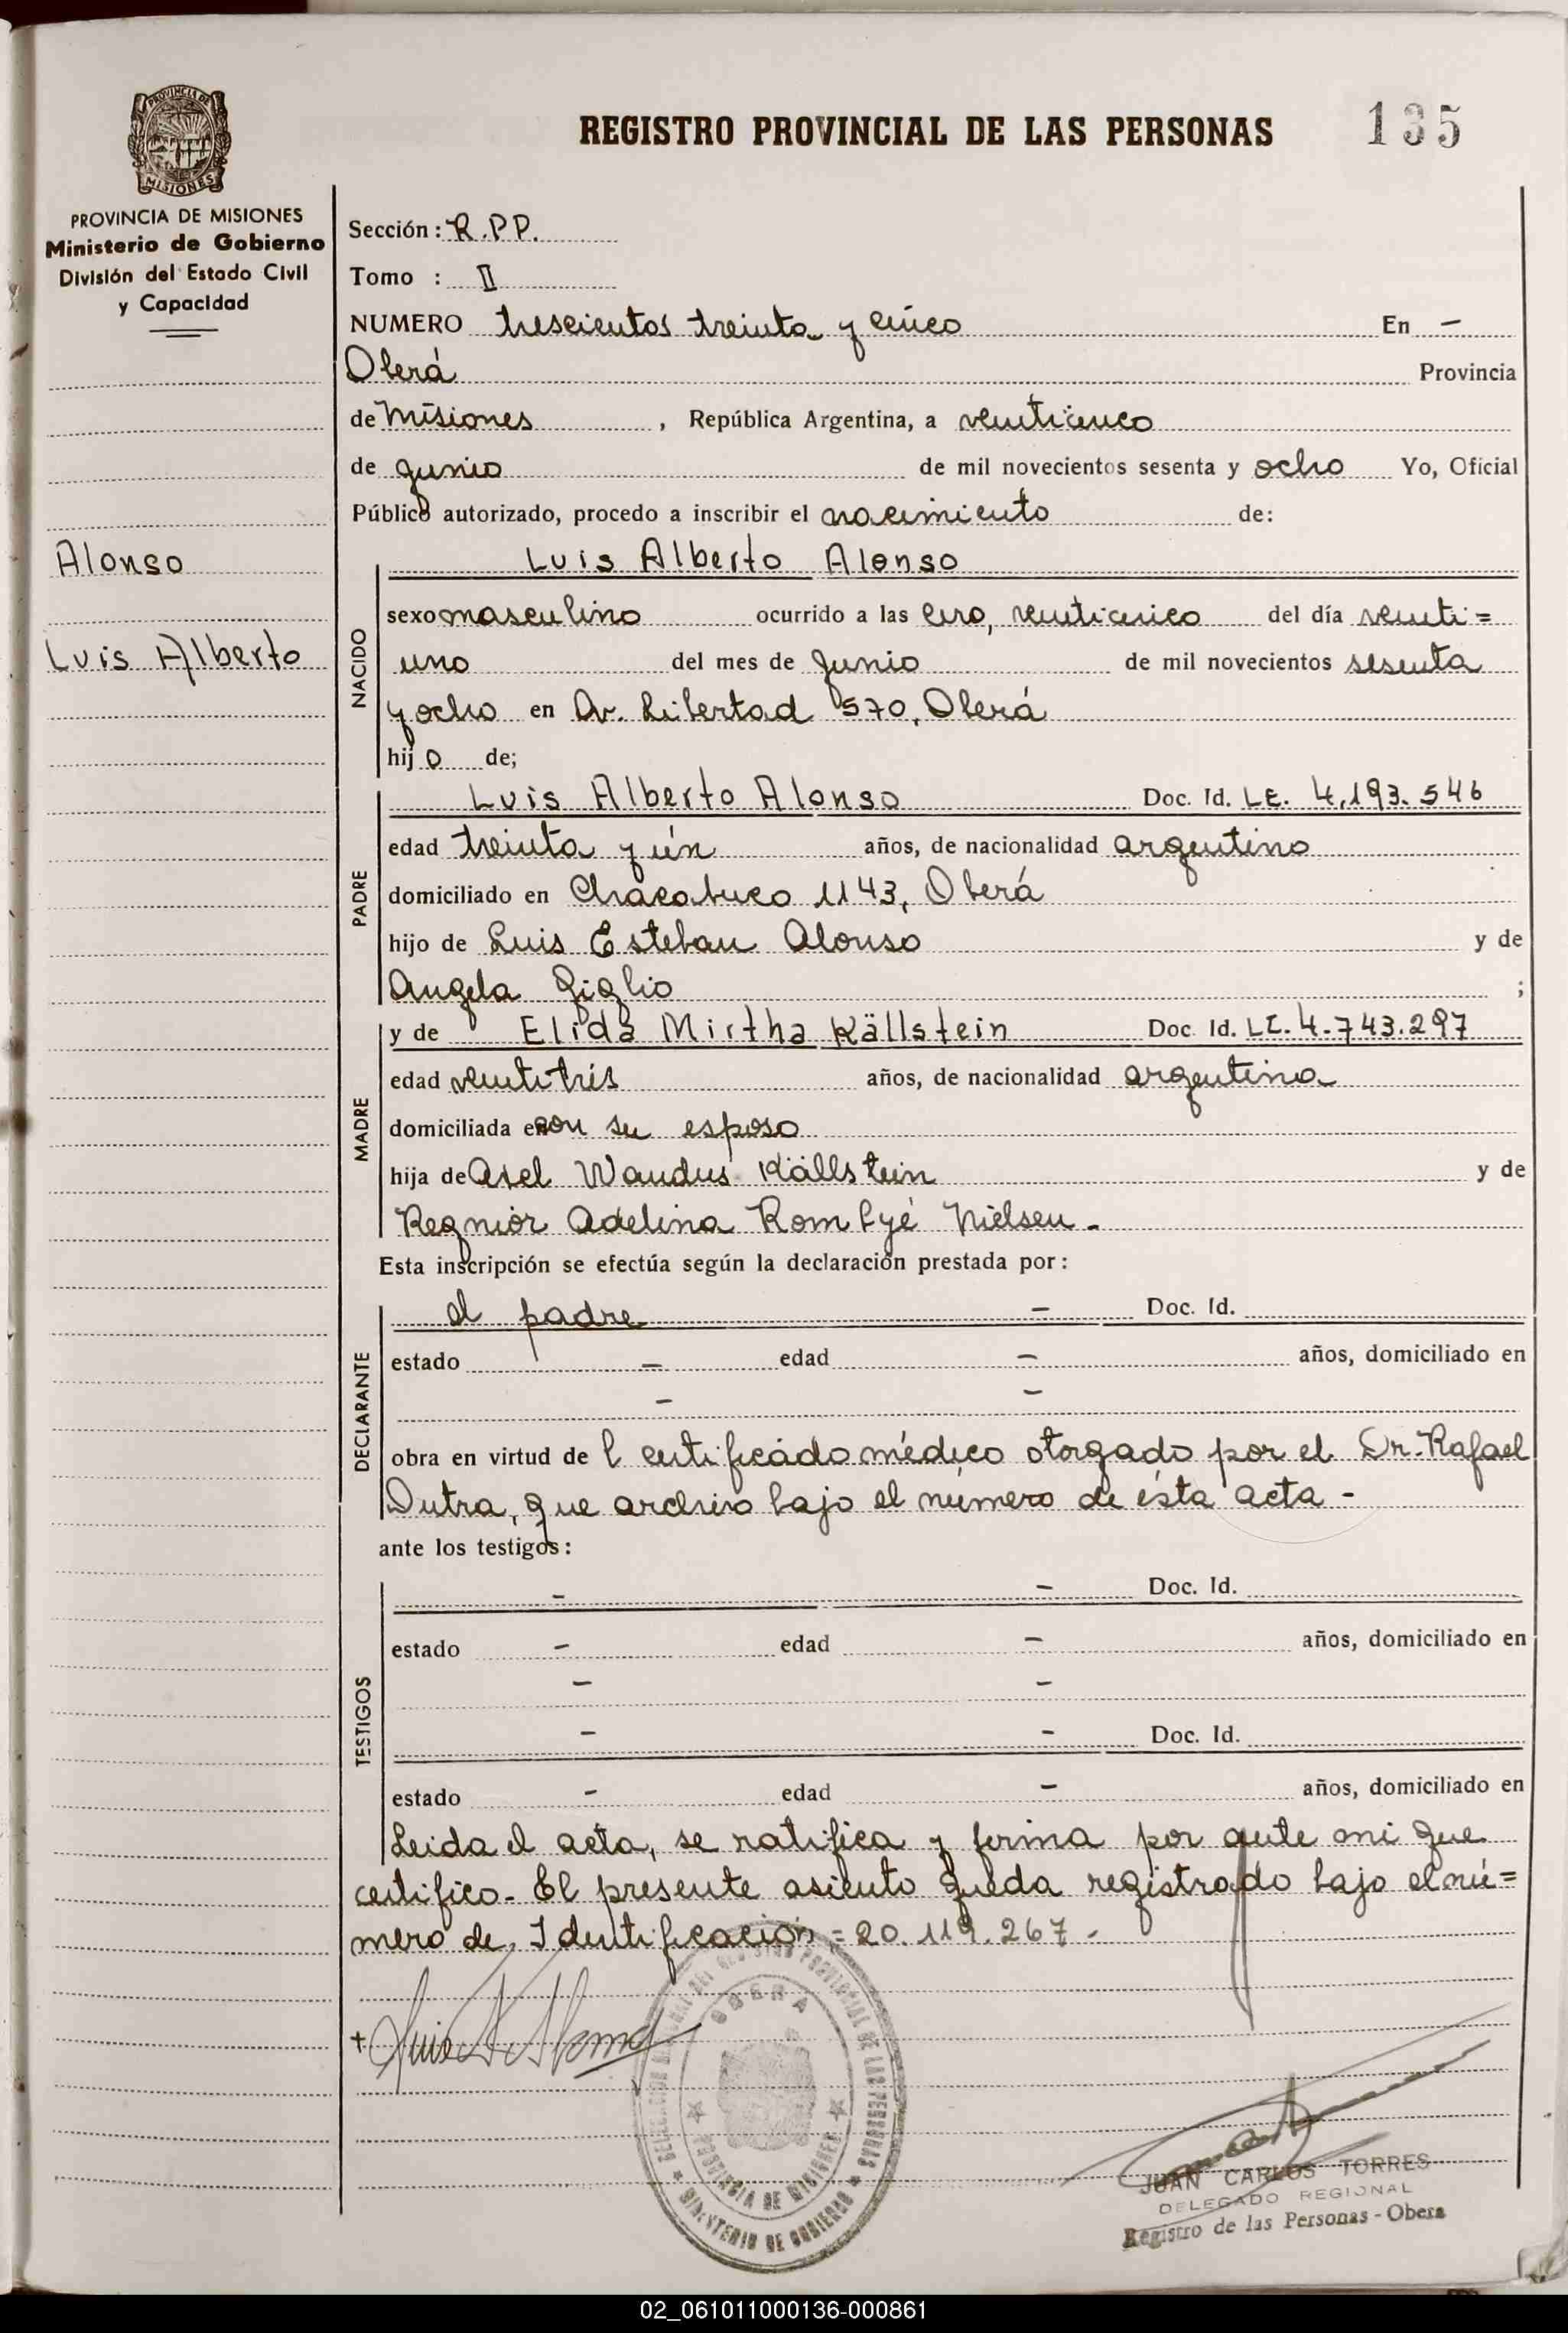 REGISTRO PROVINCIAL DE LAS PERSONAS 135
PROVINCIA DE MISIONES
PROVINCIA DE MISIONES
Ministerio de Gobierno
División del Estado Civil
y Capacidad
Alonso
Luis Alberto
Sección: R.P.P.
Tomo : II
NUMERO trescientos treinta y cinco En –
Oberá Provincia
de Misiones , República Argentina, a veinticinco
de junio de mil novecientos sesenta y ocho Yo, Oficial
Público autorizado, procedo a inscribir el nacimiento de:
NACIDO
Luis Alberto Alonso
sexo masculino ocurrido a las cero, veinticinco del día veinti=
uno del mes de junio de mil novecientos sesenta
y ocho en Av. Libertad 570, Oberá
hijo de;
PADRE
Luis Alberto Alonso Doc. Id. LE. 4.193.546
edad treinta y ún años, de nacionalidad argentino
domiciliado en Chacabuco 1143, Oberá
hijo de Luis Esteban Alonso y de
Angela Giglio ;
MADRE
y de Elida Mirtha Källstein Doc. Id. LC. 4.743.297
edad veintitrés años, de nacionalidad argentina
domiciliada en con su esposo
hija de Axel Wandus Källstein y de
Regnior Adelina Rombyé Nielsen -
Esta inscripción se efectúa según la declaración prestada por:
DECLARANTE
el padre – Doc. Id.
estado – edad – años, domiciliado en
– –
obra en virtud del certificado médico otorgado por el Dr. Rafael
Dutra, que archivo bajo el número de ésta acta -
ante los testigos:
TESTIGOS
– – Doc. Id.
estado – edad – años, domiciliado en
– –
– – Doc. Id.
estado – edad – años, domiciliado en
Leida el acta, se ratifica y firma por ante mi que
certifico. El presente asiento queda registrado bajo el nú=
mero de Identificación = 20.119.267 -
+ Luis A. Alonso
OBERA
PROVINCIA DE MISIONES
MINISTERIO DE GOBIERNO
JUAN CARLOS TORRES
DELEGADO REGIONAL
Registro de las Personas - Obera
02_061011000136-000861